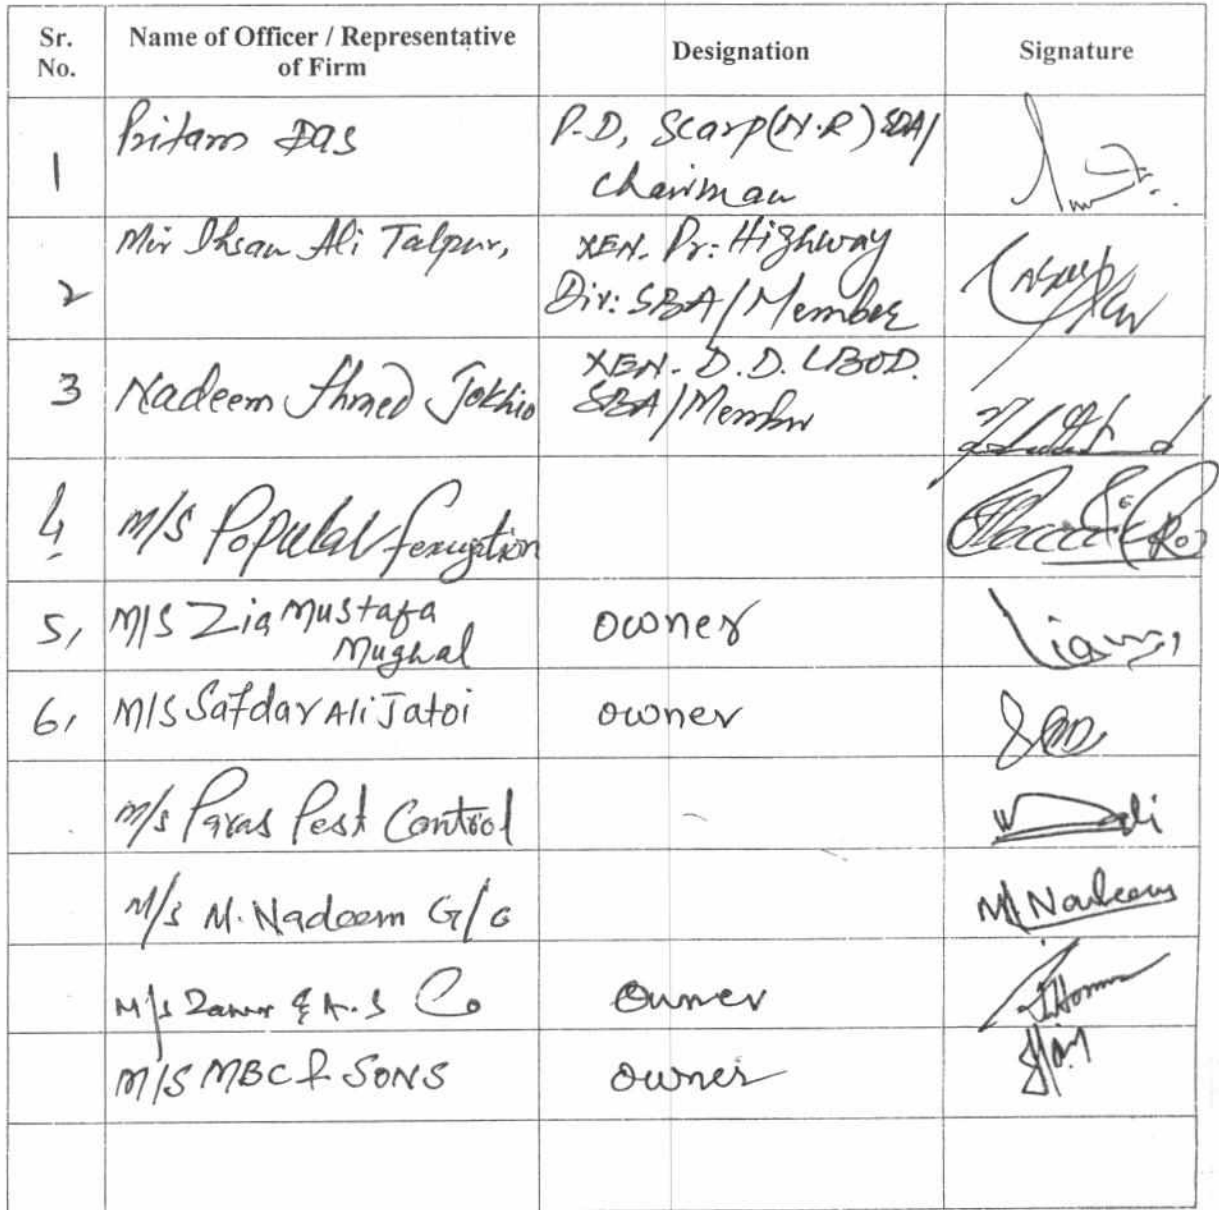 Sr.
No.
Name of Officer / Representative
of Firm
Designation
Signature
1
Pritam Das
P.D, Scarp (N.R) SBA/
Chairman
2
Mir Ihsan Ali Talpur,
XEN. Pr: Highway
Div: SBA/Member
3
Nadeem Ahmed Jokhio
XEN. D.D. LBOD.
SBA/Member
4
M/S Popular
5,
M/S Zia Mustafa
Mughal
owner
6,
M/S Safdar Ali Jatoi
owner
M/s Paras Pest Control
M/s M. Nadeem G/C
M. Nadeem
M/s & A.S Co
Owner
M/S MBC & SONS
Owner